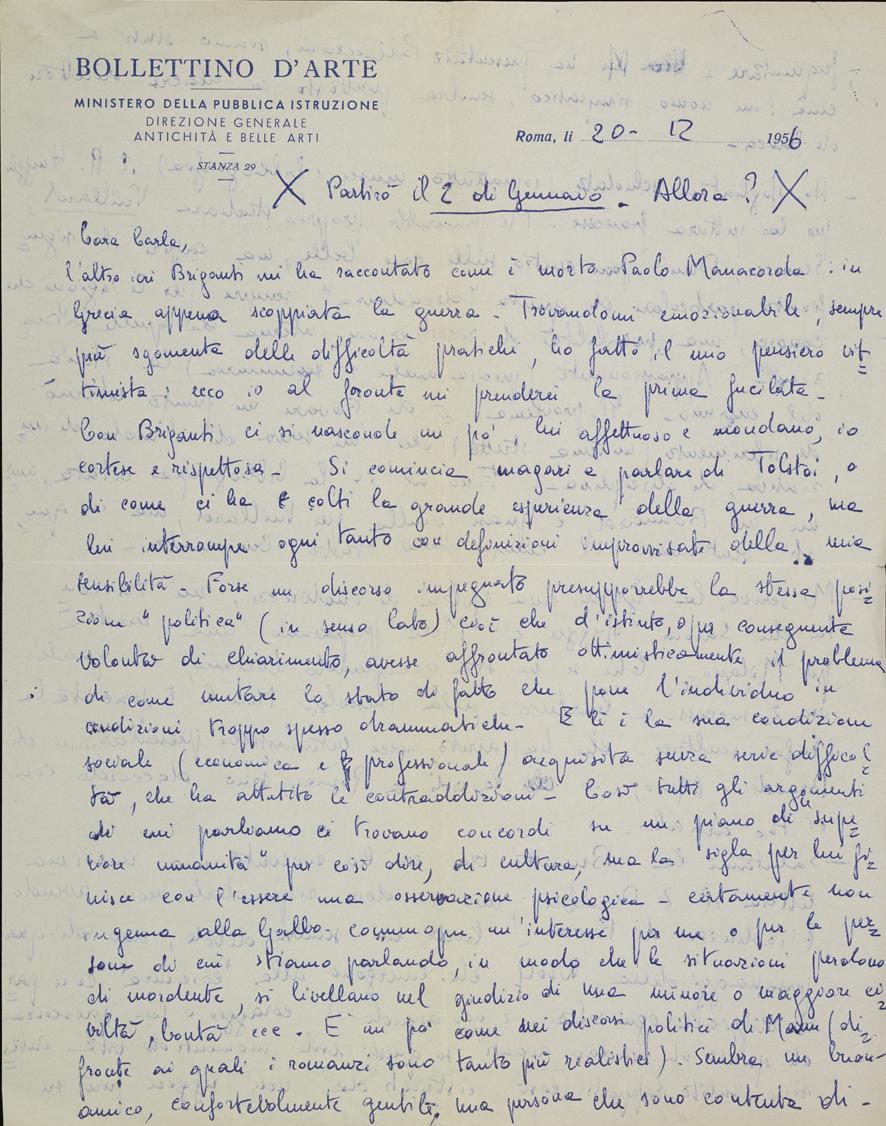 BOLLETTINO D'ARTE
MINISTERO DELLA PUBBLICA ISTRUZIONE
DIREZIONE GENERALE
ANTICHITÀ E BELLE ARTI
STANZA 29
Roma, li 20-12 1956
X Partirò il 2 di Gennaio. Allora? X
Cara Carla,
l'altro ieri Briganti mi ha raccontato come è morto Paolo Manacorda: in
Grecia appena scoppiata la guerra - Trovandomi emozionabile, sempre
più sgomenta delle difficoltà pratiche, ho fatto il mio pensiero vit=
timista: ecco io al fronte mi prenderei la prima fucilata -
Con Briganti ci si nasconde un po', lui affettuoso e mondano, io
cortese e rispettosa - Si comincia magari a parlare di Tolstoi, o
di come ci ha colti la grande esperienza della guerra, ma
lui interrompe ogni tanto con definizioni improvvisate della mia
sensibilità - Forse un discorso impegnato presupporrebbe la stessa posi=
zione "politica" (in senso lato) cioè che d'istinto, o per conseguente
volontà di chiarimento, avesse affrontato ottimisticamente il problema
di come mutare lo stato di fatto che pone l'individuo in
condizioni troppo spesso drammatiche - E lì è la sua condizione
sociale (economica e professionale) acquisita senza serie diffico
tà, che ha attutito le contraddizioni - Così tutti gli argomenti
di cui parliamo ci trovano concordi su un piano di "supe=
riore umanità" per così dire, di cultura, ma la sigla per lui fi=
nisce con l'essere una osservazione psicologica - certamente non
ingenua alla Gallo - comunque un'interesse per me o per le per=
sone di cui stiamo parlando, in modo che le situazioni perdono
di mordente, si livellano nel giudizio di una minore o maggiore ci=
viltà, bontà ecc. È un po' come nei discorsi politici di Mann (di
fronte ai quali i romanzi sono tanto più realistici). Sembra un buon
amico, confortevolmente gentile, una persona che sono contenta di -